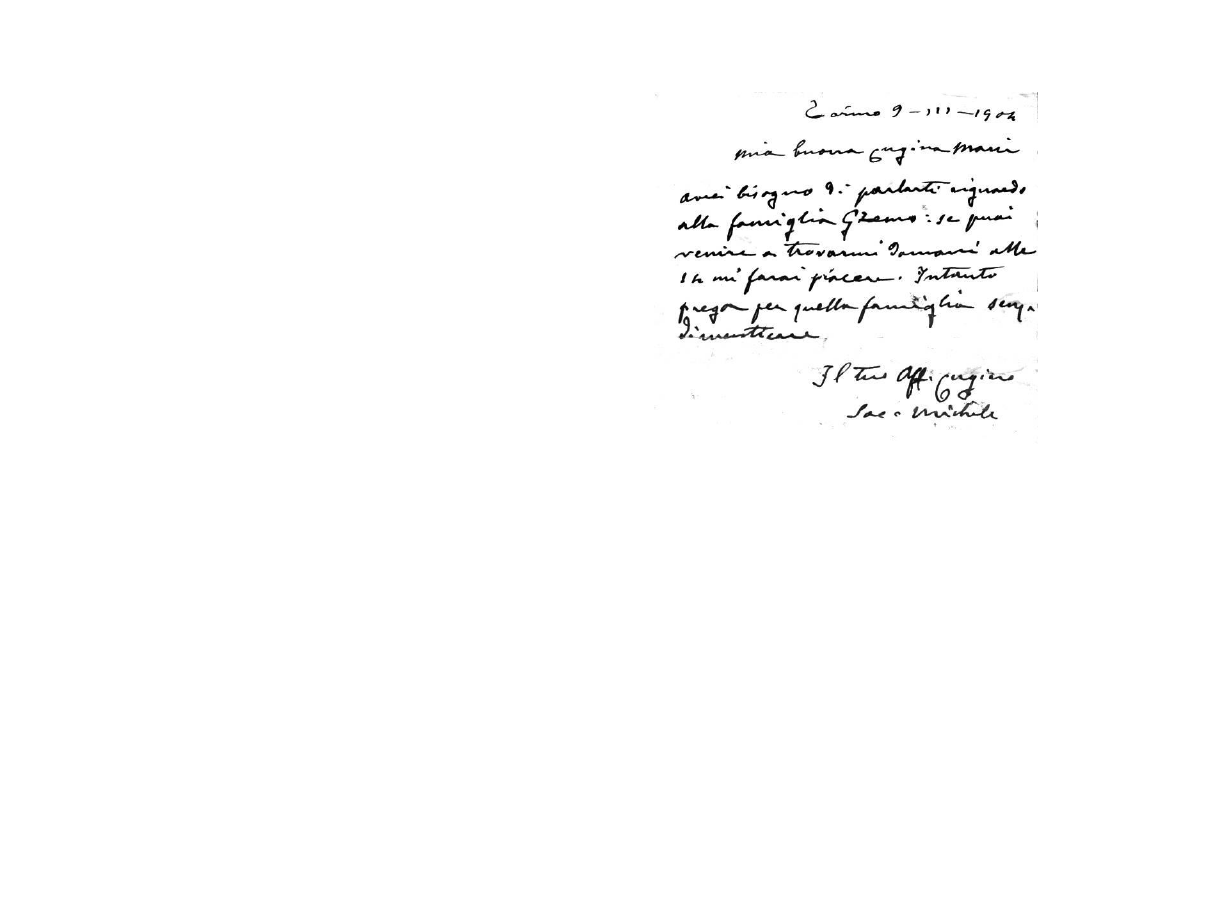 Torino 9 - III - 1904
mia buona cugina Maria
avrei bisogno di parlarti riguardo
alla famiglia : se puoi
venire a trovarmi domani alle
14 mi farai piacere. Intanto
prega per quella famiglia senza
dimenticare.
Il tuo Aff. cugino
Sac. Michele